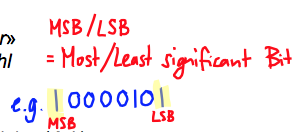 r»
MSB/LSB
hl
= Most/Least significant Bit
e.g. 10000101
MSB LSB